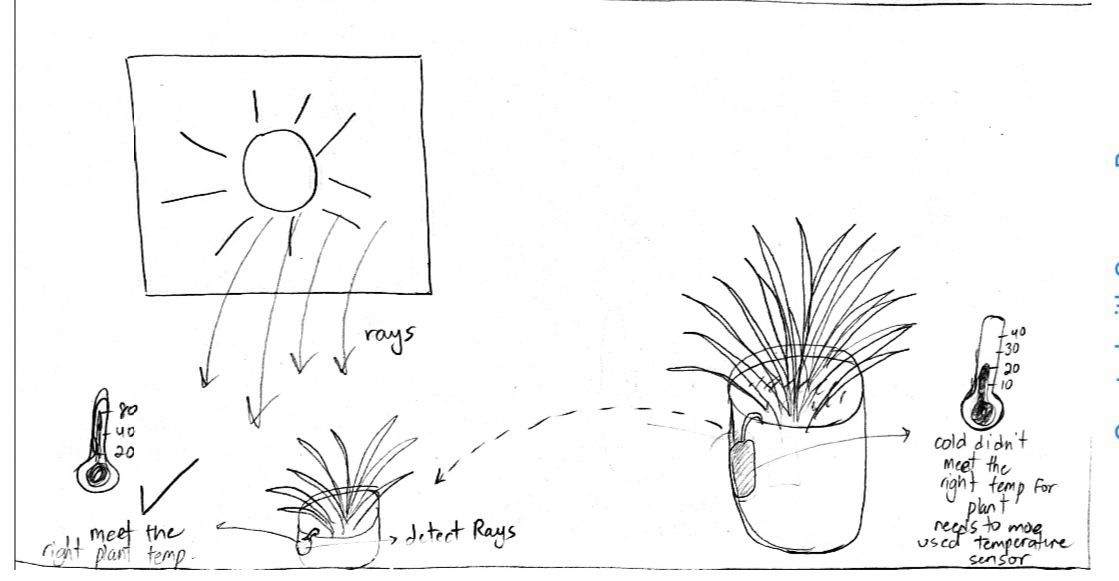 rays
80
40
20
meet the
right plant temp.
detect Rays
40
30
20
10
cold didn't
meet the
right temp for
plant
needs to move
used temperature
sensor